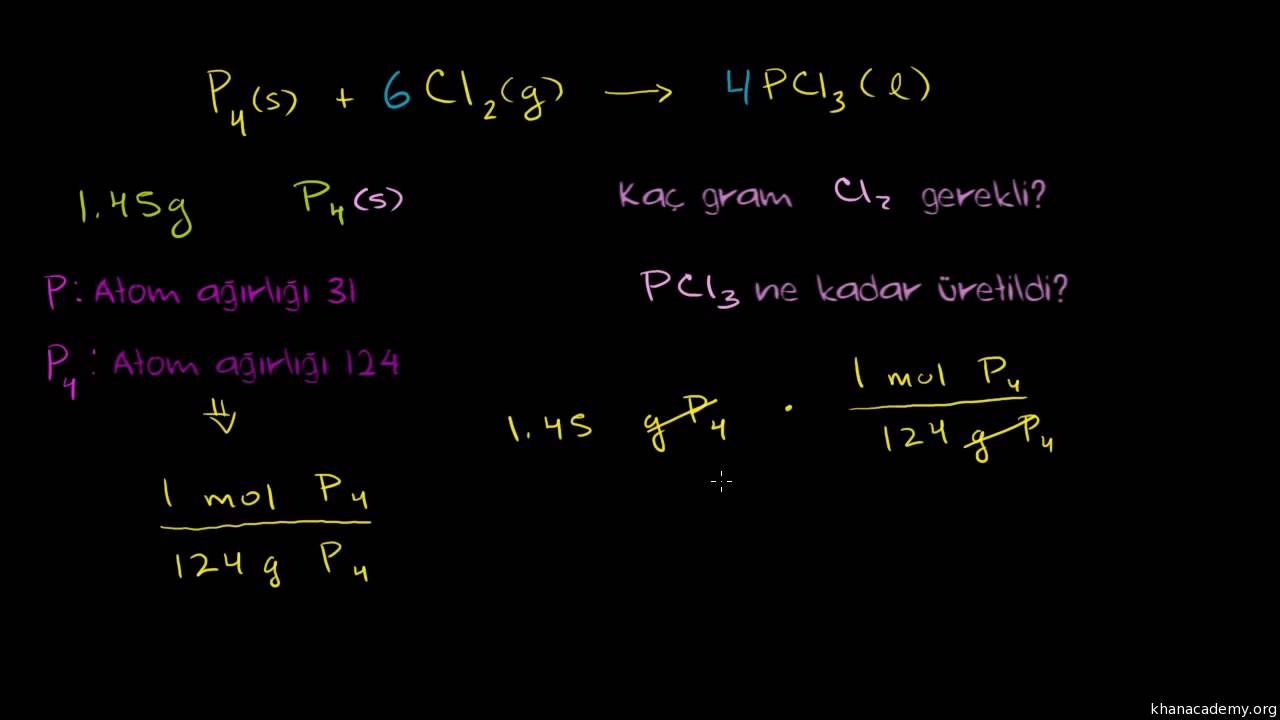 P₄(s) + 6Cl₂(g) → 4PCl₃(l)
1.45g P₄(s) Kaç gram Cl₂ gerekli?
P: Atom ağırlığı 31 PCl₃ ne kadar üretildi?
P₄: Atom ağırlığı 124
⇓
1.45 g P₄ · 1 mol P₄
124 g P₄
1 mol P₄
124 g P₄
khanacademy.org